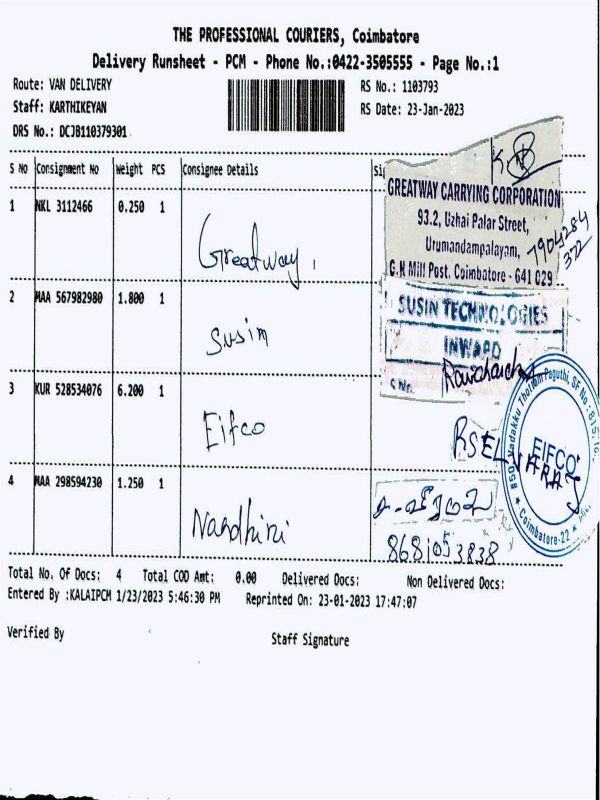 THE PROFESSIONAL COURIERS, Coimbatore
Delivery Runsheet - PCM - Phone No.:0422-3505555 - Page No.:1
Route: VAN DELIVERY
RS No.: 1103793
Staff: KARTHIKEYAN
RS Date: 23-Jan-2023
DRS No.: DCJB110379301
S No Consignment No Weight PCS Consignee Details Si
1 NKL 3112466 0.250 1 Greatway
GREATWAY CARRYING CORPORATION
93.2, Uzhai Palar Street,
Urumandampalayam,
G.N Mill Post, Coimbatore - 641 029
7904284
372
2 MAA 567982980 1.800 1 Susim
SUSIN TECHNOLOGIES
INWARD
3 KUR 528534076 6.200 1 Eifco
RSELVARAJ
EIFCO
Coimbatore-22
4 MAA 298594230 1.250 1 Nandhini
8681053838
Total No. Of Docs: 4 Total COD Amt: 0.00 Delivered Docs: Non Delivered Docs:
Entered By :KALAIPCM 1/23/2023 5:46:30 PM Reprinted On: 23-01-2023 17:47:07
Verified By
Staff Signature